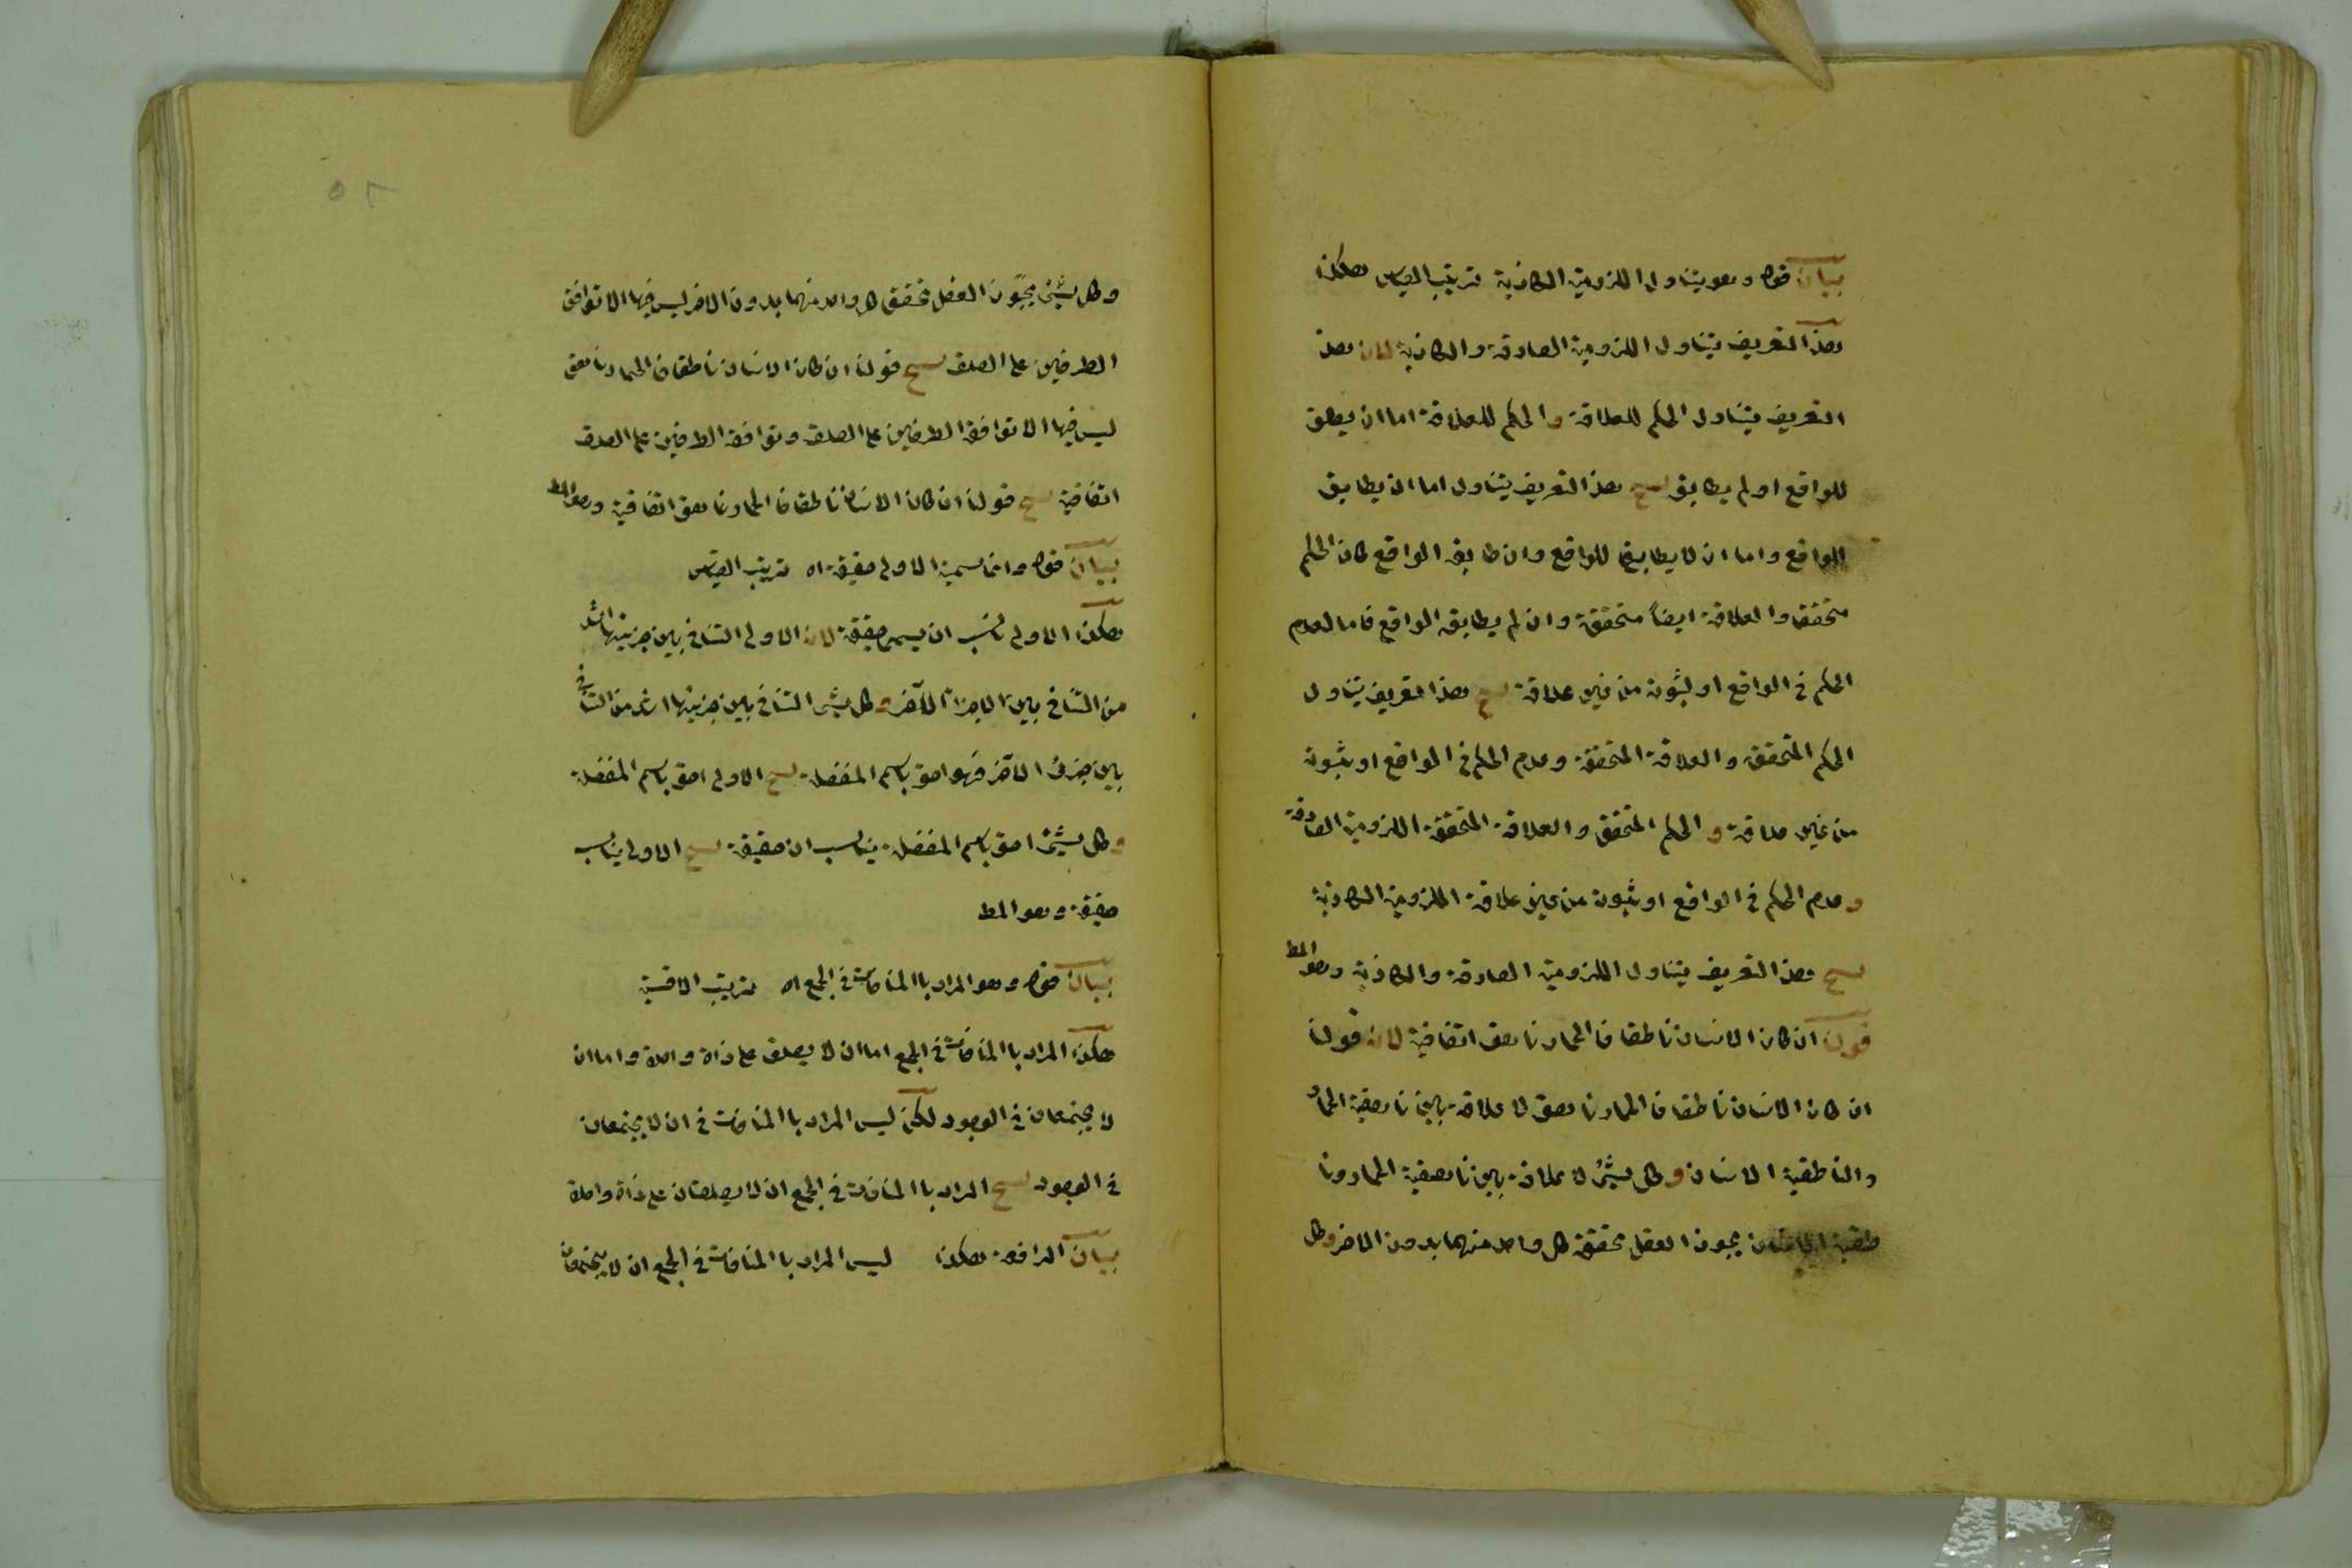 بيان قوله وهو يتناول اللزومية الكاذبة ترتيب القياس هكذا
هذا التعريف يتناول اللزومية الصادقة والكاذبة لان هذ
التعريف يتناول الحكم للعلاقة والحكم للعلاقة اما ان يطابق
للواقع او لم يطابق ينتج هذا التعريف يتناول اما ان يطابق
للواقع واما ان لا يطابق للواقع وان طابق الواقع كان الحكم
متحققا والعلاقة ايضاً متحققة وان لم يطابق الواقع فاما لعدم
الحكم في الواقع او ثبوته من غير علاقة ينتج هذا التعريف يتناول
الحكم المتحقق والعلاقة المتحققة وعدم الحكم في الواقع او ثبوته
من غير علاقة و الحكم المتحقق والعلاقة المتحققة اللزومية الصادقة
وعدم الحكم في الواقع او ثبوته من غير علاقة اللزومية الكاذبة
ينتج هذا التعريف يتناول اللزومية الصادقة والكاذبة وهو المط
قولنا ان كان الانسان ناطقا فالحمار ناهق اتفاقية لان قولنا
ان كان الانسان ناطقا فالحمار ناهق لا علاقة بين ناهقية الحمار
والناطقية الانسان وكل شئ لا علاقة بين ناهقية الحمار ونا
طقية الانسان يجوز العقل تحقق كل واحد منهما بدون الاخر وكل
٥٢
وكل شئ يجوّز العقل تحقق كل واحد منهما بدون الاخر ليس فيها الا توافق
الطرفين على الصدق ينتج قولنا ان كان الانسان ناطقا فالحمار ناهق
ليس فيها الا توافق الطرفين على الصدق وتوافق الطرفين على الصدق
اتفاقية ينتج قولنا ان كان الانسان ناطقا فالحمار ناهق اتفاقية وهو المط
بيان قوله وانما سمية الاولى حقيقة اه ترتيب القياس
هكذا الاولى ناسب ان يسمى حقيقة لان الاولى التنافي بين جزئيها اشد
من التنافي بين الاجزاء الآخر وكل شئ التنافي بين جزئيها اشد من التنافي
بين جزئى الآخر فهو احق باسم المنفصلة ينتج الاولى احق باسم المنفصلة
وكل شئ احق باسم المنفصلة يناسب ان حقيقة ينتج الاولى يناسب
حقيقة وهو المط
بيان قوله وهو المراد باالمنافات في الجمع اه ترتيب الاقسية
هكذا المراد باالمنافات في الجمع اما ان لا يصدق على ذاة واحدة واما ان
لا يجتمعان في الوجود لكن ليس المراد باالمنافات في ان لا يجتمعان
في الوجود ينتج المراد باالمنافات في الجمع ان لا يصدقان على ذاة واحدة
بيان الرافعة هكذا ليس المراد باالمنافات في الجمع ان لا يجتمعان